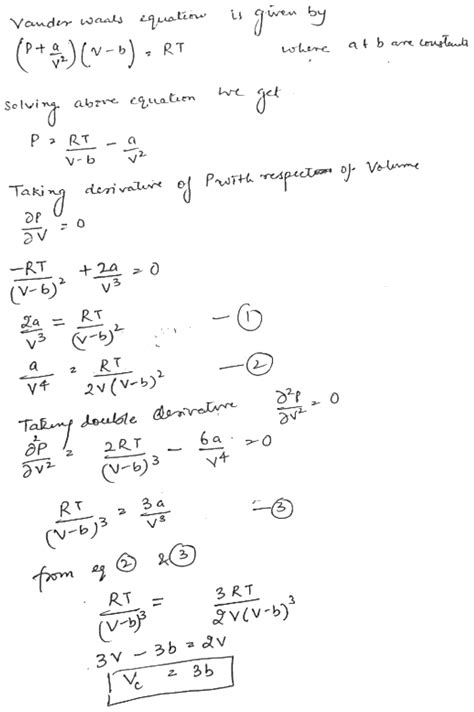 Vander waals equation is given by
(P + a/V²) (V - b) = RT where a & b are constants
Solving above equation we get
P = RT/(V-b) - a/V²
Taking derivative of P with respect of Volume
∂P/∂V = 0
-RT/(V-b)² + 2a/V³ = 0
2a/V³ = RT/(V-b)² - ①
a/V⁴ = RT/2V(V-b)² - ②
Taking double derivative ∂²P/∂V² = 0
∂²P/∂V² = 2RT/(V-b)³ - 6a/V⁴ = 0
RT/(V-b)³ = 3a/V³ - ③
from eq ② & ③
RT/(V-b)³ = 3RT/2V(V-b)³
3V - 3b = 2V
Vc = 3b